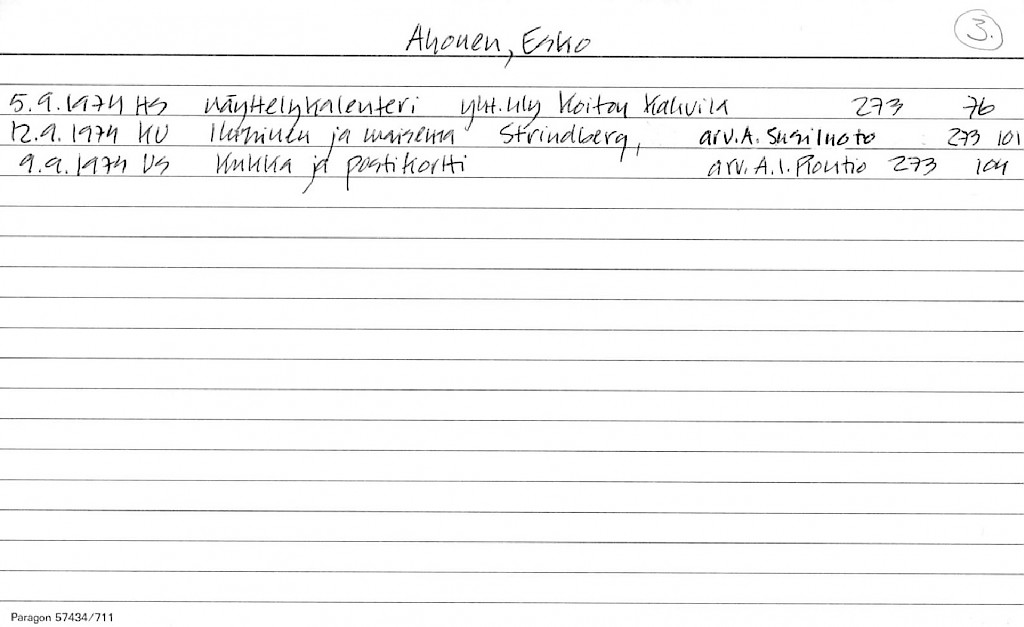 Ahonen, Esko 3.
5.9.1974 HS Näyttelykalenteri yht.näy Koiton Kahvila 273 76
12.9.1974 KU Ihminen ja maisema Strindberg, arv. A. Susiluoto 273 101
9.9.1974 US Kukka ja postikortti arv. A.I. Routio 273 104
Paragon 57434/711